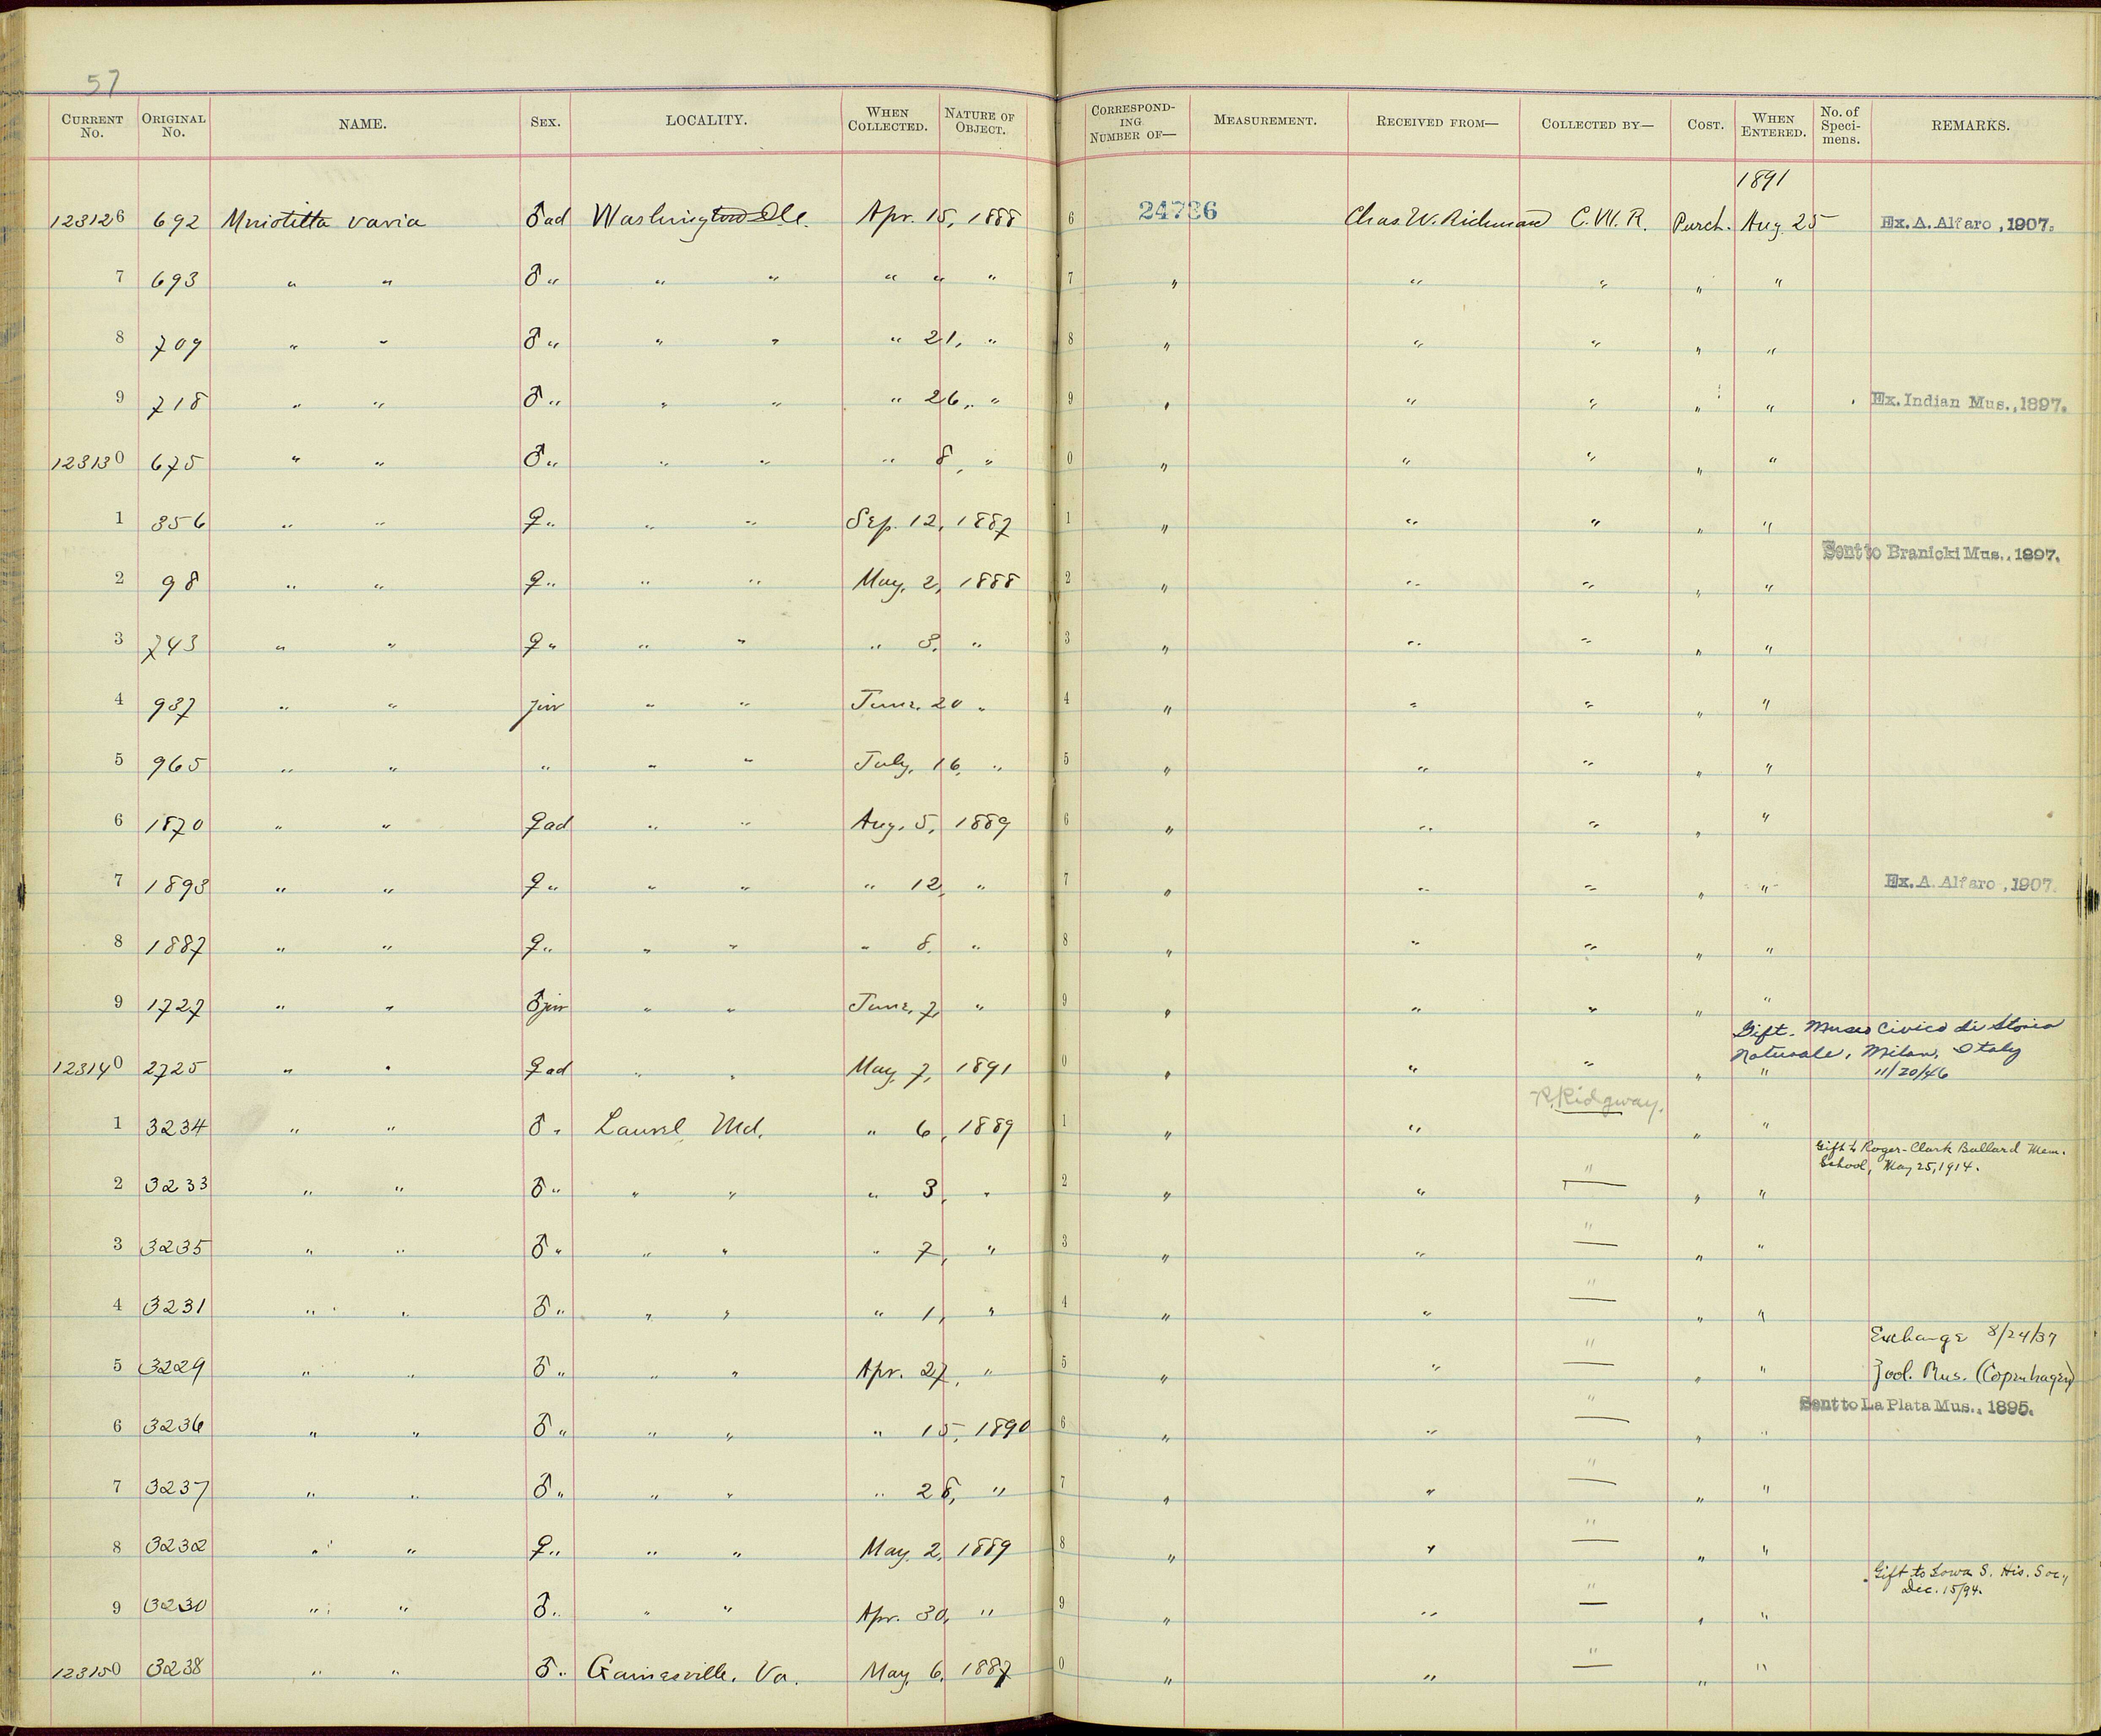 57
CURRENT No. ORIGINAL No. NAME. SEX. LOCALITY. WHEN COLLECTED. NATURE OF OBJECT. CORRESPONDING NUMBER OF— MEASUREMENT. RECEIVED FROM— COLLECTED BY— COST. WHEN ENTERED. No. of Specimens. REMARKS.
1891
123126 692 Mniotilta varia ♂ ad Washington D.C. Apr. 15, 1888 6 24736 Chas. W. Richmond C. W. R. Purch. Aug. 25 Ex. A. Alfaro, 1907.
7 693 " " ♂ " " " " " " 7 " " " " "
8 709 " " ♂ " " " " 21, " 8 " " " " "
9 718 " " ♂ " " " " 26, " 9 " " " " " Ex. Indian Mus., 1897.
123130 675 " " ♂ " " " " 8, " 0 " " " " "
1 356 " " ♀ " " " Sep. 12, 1887 1 " " " " "
Sent to Branicki Mus., 1897.
2 98 " " ♀ " " " May, 2, 1888 2 " " " " "
3 743 " " ♀ " " " " 3, " 3 " " " " "
4 937 " " juv " " June. 20 " 4 " " " " "
5 965 " " " " " July, 16, " 5 " " " " "
6 1870 " " ♀ ad " " Aug. 5, 1889 6 " " " " "
7 1893 " " ♀ " " " " 12, " 7 " " " " " Ex. A. Alfaro, 1907.
8 1887 " " ♀ " " " " 8. " 8 " " " " "
9 1727 " " ♂ juv " " June, 7, " 9 " " " " "
Gift. Museo Civico di Storia
Naturale, Milan, Italy
123140 2725 " " ♀ ad " " May, 7, 1891 0 " " " " " 11/20/46
R. Ridgway.
1 3234 " " ♂ " Laurel, Md. " 6, 1889 1 " " " "
Gift to Roger-Clark Ballard Mem.
School, May 25, 1914.
2 3233 " " ♂ " " " " 3, " 2 " " " " "
3 3235 " " ♂ " " " " 7, " 3 " " " " "
4 3231 " " ♂ " " " " 1, " 4 " " " " "
Exchange 8/24/37
5 3229 " " ♂ " " " Apr. 27, " 5 " " " " " Zool. Mus. (Copenhagen)
Sent to La Plata Mus., 1895.
6 3236 " " ♂ " " " " 15, 1890 6 " " " " "
7 3237 " " ♂ " " " " 28, " 7 " " " " "
8 3232 " " ♀ " " " May, 2, 1889 8 " " " " "
Gift to Iowa S. His. Soc.,
Dec. 15/94.
9 3230 " " ♂ " " " Apr. 30, " 9 " " " " "
123150 3238 " " ♂ " Gainesville, Va. May, 6, 1887 0 " " " " "